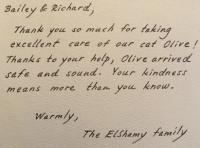 Bailey & Richard,
Thank you so much for taking
excellent care of our cat Olive!
Thanks to your help, Olive arrived
safe and sound. Your kindness
means more than you know.
Warmly,
The ElShamy family